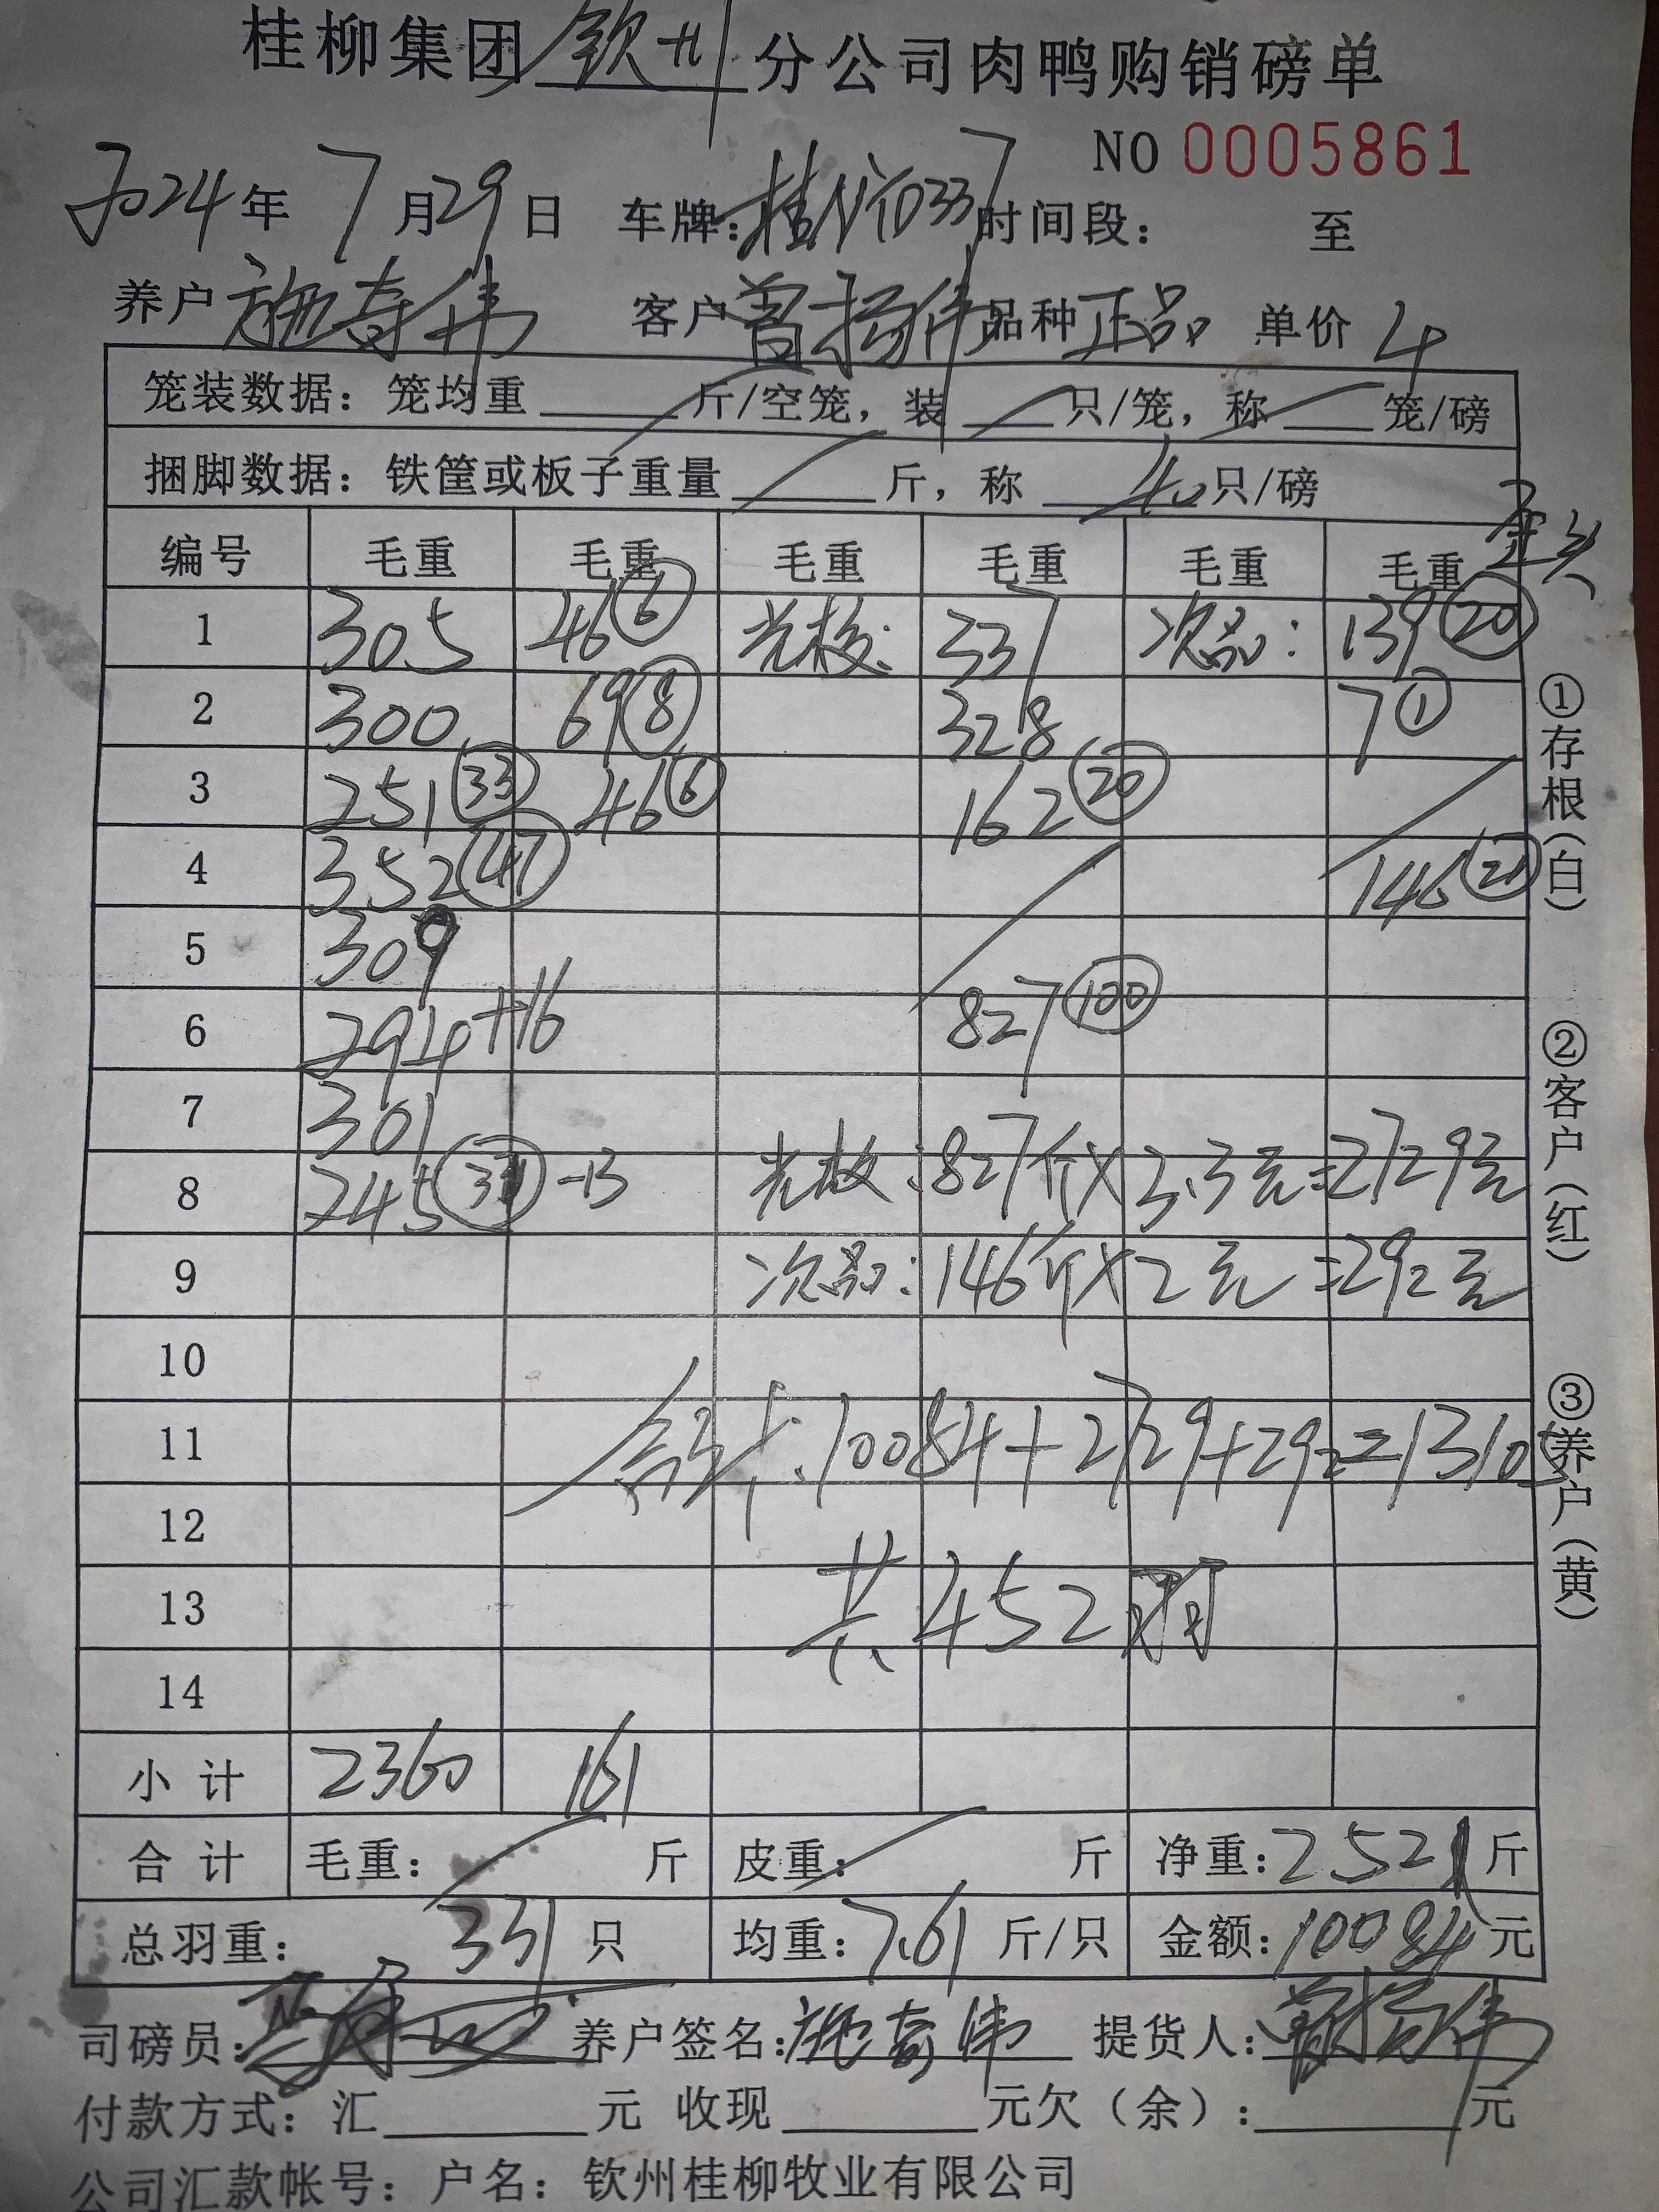 桂柳集团钦州分公司肉鸭购销磅单
NO 0005861
2024年7月29日 车牌: 时间段: 至
养户 施奇伟 客户 曾扬伟 品种 正品 单价 4
笼装数据: 笼均重 斤/空笼, 装 只/笼, 称 笼/磅
捆脚数据: 铁筐或板子重量 斤, 称 40 只/磅
编号 毛重 毛重 毛重 毛重 毛重 毛重
1 305 46 ⑥ 光板: 337 次品: 139 ⑳
2 300 69 ⑧ 328 7 ①
3 251 ㉝ 46 ⑥ 162 ⑳
4 352 ㊼ 146 ㉑
5 309
6 294 +16 827 (100)
7 301
8 245 -13 光板: 827斤×3.3元=2729元
9 次品: 146斤×2元=292元
10
11 合计: 10084+2729+292=13105
12
13 共452羽
14
小计 2360 161
合计 毛重: 斤 皮重: 斤 净重: 2521斤
总羽重: 331 只 均重: 7.61 斤/只 金额: 10084元
司磅员: 养户签名: 施奇伟 提货人: 曾扬伟
付款方式: 汇 元 收现 元欠(余): 元
公司汇款帐号: 户名: 钦州桂柳牧业有限公司
①存根(白)
②客户(红)
③养户(黄)